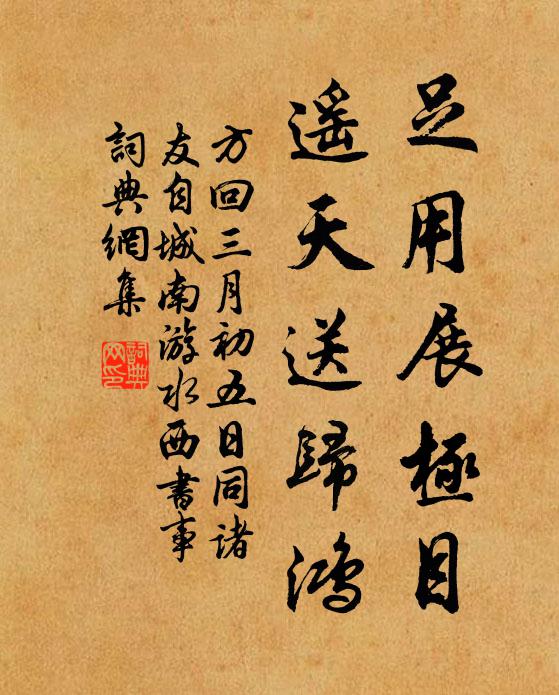 足用展極目
遥天送歸鴻
方回三月初五日同諸
友自城南游水西書事
詞典網集
詞典網印